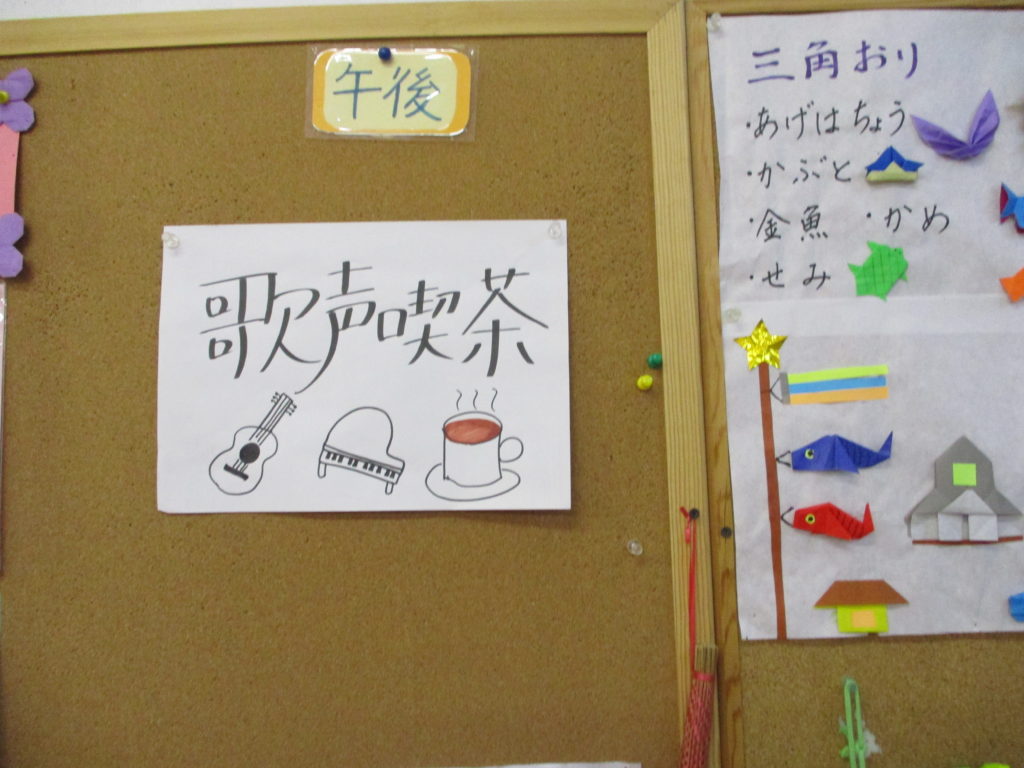 午後
歌声喫茶
三角おり
・あげはちょう
・かぶと
・金魚 ・かめ
・せみ